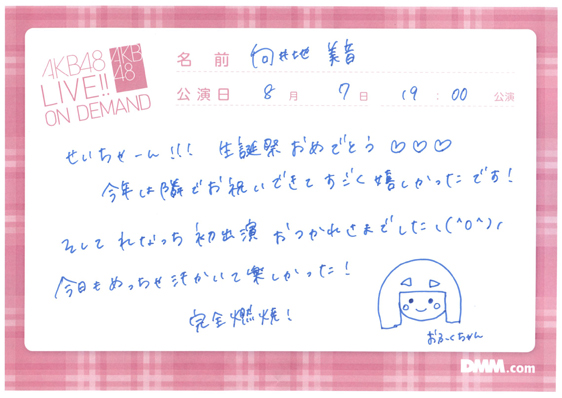 AKB48
LIVE!!
ON DEMAND
AKB
48
名 前 向井地 美音
公演日 8月 7日 19:00 公演
せいちゃーん!!! 生誕祭おめでとう♡♡♡
今年は隣でお祝いできてすごく嬉しかったです!
そして れなっち 初出演 おつかれさまでした、(^o^),
今日もめっちゃ汗かいて楽しかった!
完全燃焼!
おふくちゃん
DMM.com